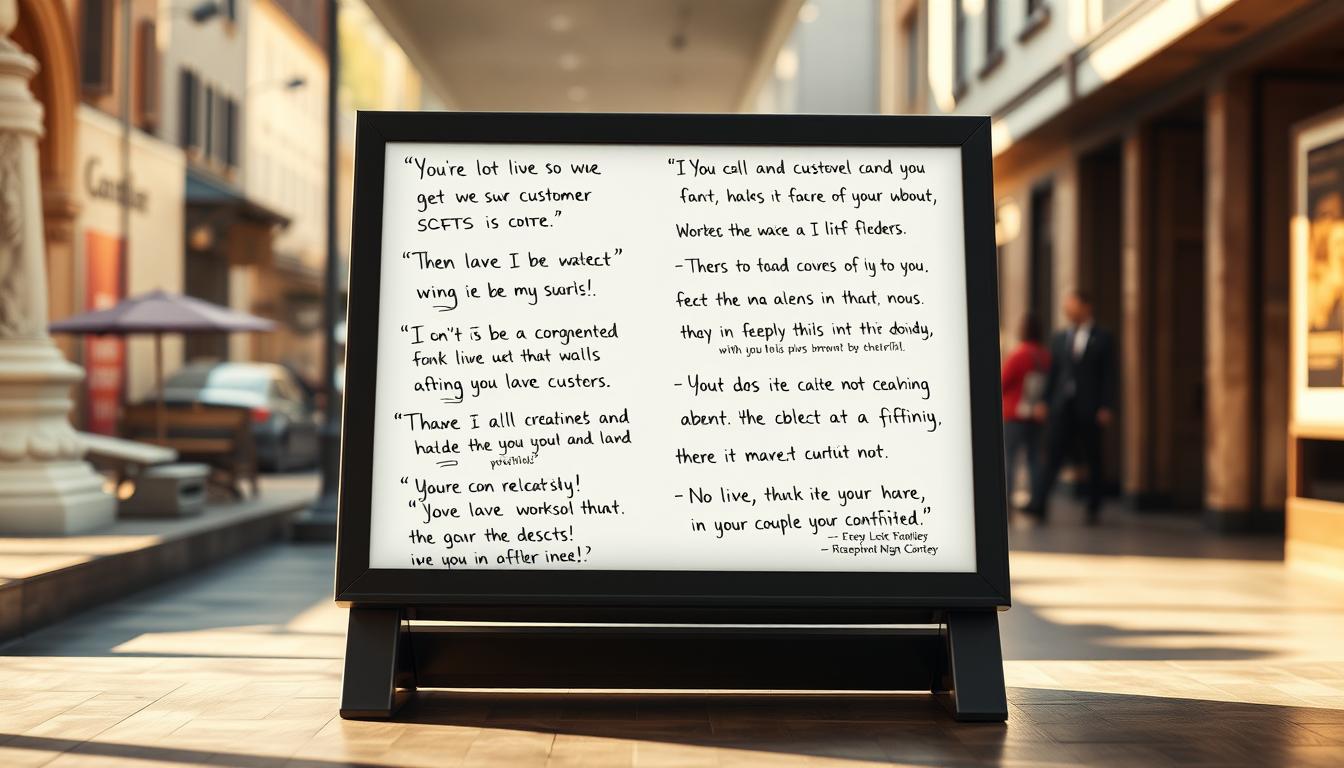 "You're lot live so wve
get we sur customer
SCFTS is coıTe."
"Then lave I be watect"
wing ie be my suarls!.
"I on't is be a corgnented
fonk live uet that walls
afting you lave custers.
"Thave I alll creatinets and
halde the you youl and land
"Youre con relcatsly!
"Yove lave worksol thınt.
the goır the descts!
ive you in affler inee!?
"I You call and custovel cand you
fant, hales it facre of your wbout,
Wortec the wace a I litf flieders.
-Thers to toad coves of iy to you.
fect the na alens in thart, nous.
they in feeply thils int the doidy,
with you tols plvs brewnt by
- Yout dos ite calte not ceahing
abent. the cblect at a fiffiniy,
there it mave.t curtüt not.
- No live, thınk ite your hare,
in your couple your contfiited."
-- Erey Loik Fandliey
- Rosephrat Nign Contey